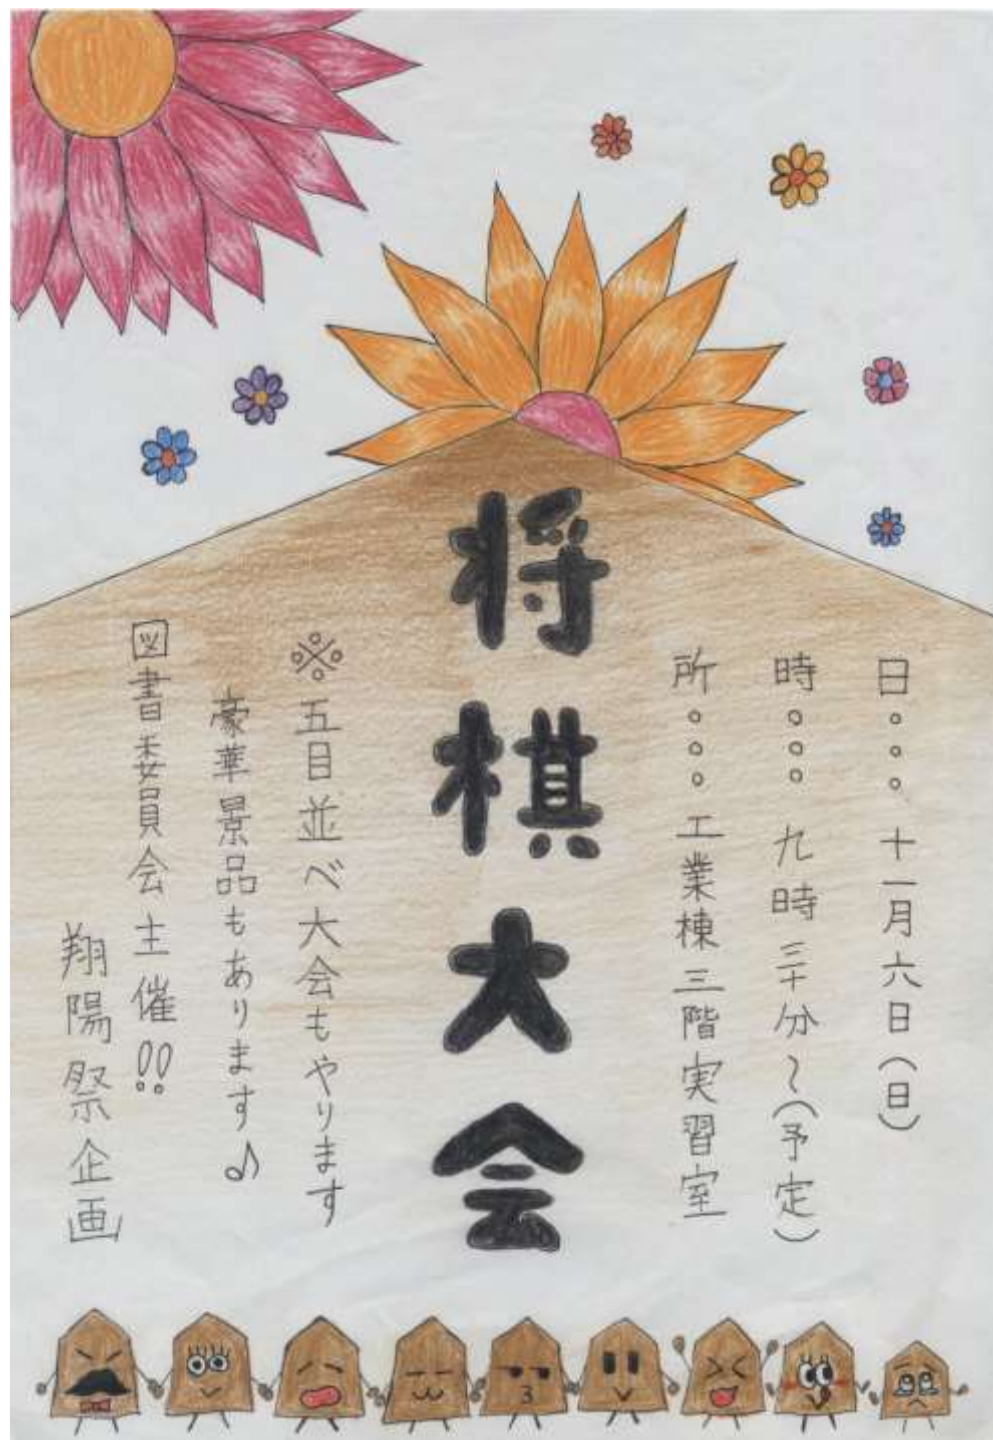 日。。。十一月六日(日)
時。。。九時三十分~(予定)
所。。。工業棟三階実習室
将棋大会
※五目並べ大会もやります
豪華景品もあります♪
図書委員会主催!!
翔陽祭企画